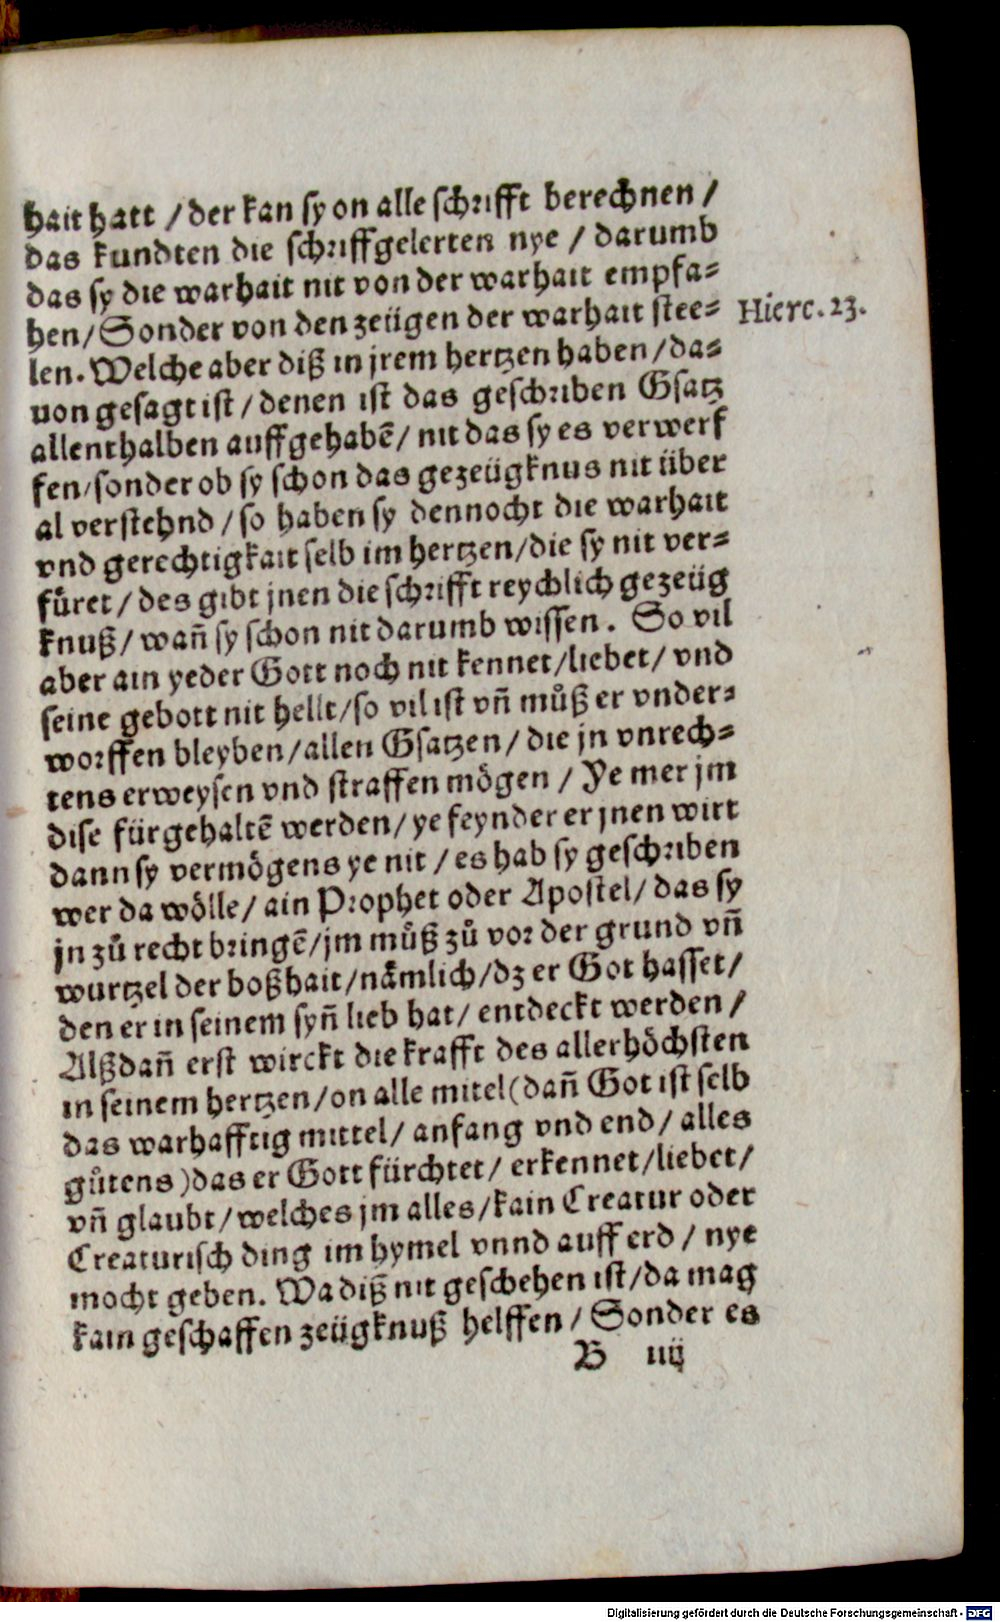 hait hatt / der kan sy on alle schrifft berechnen /
das kundten die schriffgelerten nye / darumb
das sy die warhait nit von der warhait empfa⸗
hen / Sonder von den zeügen der warhait stee⸗
Hiere. 23.
len. Welche aber diß in jrem hertzen haben / da⸗
uon gesagt ist / denen ist das geschriben Gsatz
allenthalben auffgehabē / nit das sy es verwerf
fen / sonder ob sy schon das gezeügknus nit über
al verstehnd / so haben sy dennocht die warhait
vnd gerechtigkait selb im hertzen / die sy nit ver⸗
fůret / des gibt jnen die schrifft reychlich gezeüg
knuß / wañ sy schon nit darumb wissen. So vil
aber ain yeder Gott noch nit kennet / liebet / vnd
seine gebott nit hellt / so vil ist vñ můß er vnder⸗
worffen bleyben / allen Gsatzen / die jn vnrech⸗
tens erweysen vnd straffen mögen / Ye mer jm
dise fürgehaltē werden / ye feynder er jnen wirt
dann sy vermögens ye nit / es hab sy geschriben
wer da wölle / ain Prophet oder Apostel / das sy
jn zů recht bringē / jm můß zů vor der grund vñ
wurtzel der boßhait / nåmlich / dz er Got hasset /
den er in seinem syñ lieb hat / entdeckt werden /
Alßdañ erst wirckt die krafft des allerhöchsten
in seinem hertzen / on alle mitel (dañ Got ist selb
das warhafftig mittel / anfang vnd end / alles
gůtens) das er Gott fürchtet / erkennet / liebet /
vñ glaubt / welches jm alles / kain Creatur oder
Creaturisch ding im hymel vnnd auff erd / nye
mocht geben. Wa diß nit geschehen ist / da mag
kain geschaffen zeügknuß helffen / Sonder es
B iiij
Digitalisierung gefördert durch die Deutsche Forschungsgemeinschaft - DFG